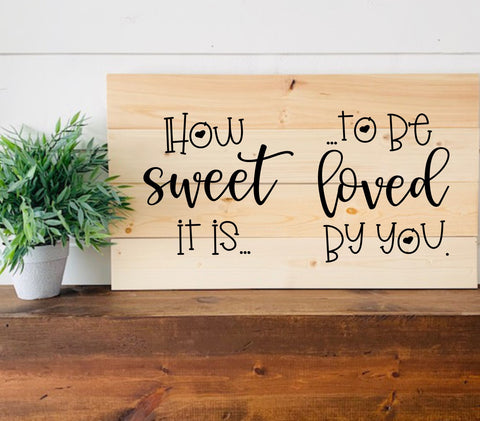 How
sweet
it is...
...to be
loved
by you.